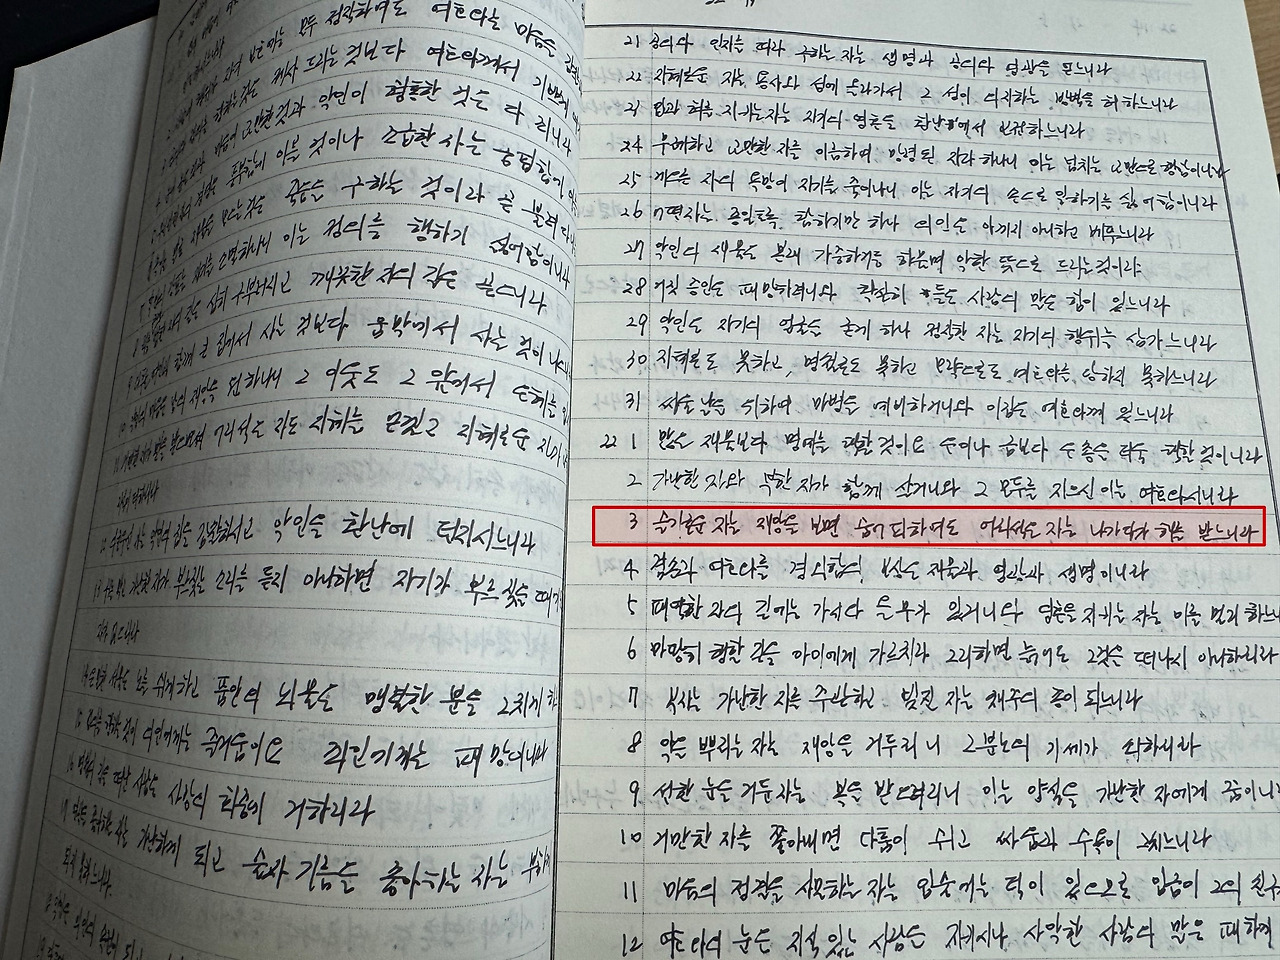 모두 정직하여도 여호와는 마음을 감찰
드리는 것보다 여호와께서 기쁘게
교만한 것과 악인이 형통한 것은 다 죄니라
풍부함에 이를 것이나 조급한 자는 궁핍함에
죽음을 구하는 것이라 곧 불려다니는
소멸하나니 이는 정의를 행하기 싫어함이니라
심히 구부러지고 깨끗한 자의 길은 곧으니라
함께 큰 집에서 사는 것보다 움막에서 사는 것이 나으니라
재앙을 원하나니 그 이웃도 그 앞에서 은혜를
벌을 받으면 어리석은 자도 지혜를 얻겠고 지혜로운 자가
더하리라
집을 감찰하시고 악인을 환난에 던지시느니라
13 귀를 막고 가난한 자가 부르짖는 소리를 듣지 아니하면 자기가 부르짖을 때에
쉬게 하고 품 안의 뇌물은 맹렬한 분을 그치게 하
정의를 행하는 것이 의인에게는 즐거움이요 죄인에게는 패망이니라
길을 떠난 사람은 사망의 회중에 거하리라
좋아하는 자는 가난하게 되고 술과 기름을 좋아하는 자는 부하게
되지 못하느니라
21 공의와 인자를 따라 구하는 자는 생명과 공의와 영광을 얻느니라
22 지혜로운 자는 용사의 성에 올라가서 그 성이 의지하는 방벽을 허느니라
23 입과 혀를 지키는 자는 자기의 영혼을 환난에서 보전하느니라
24 무례하고 교만한 자를 이름하여 망령된 자라 하나니 이는 넘치는 교만으로 행함이니라
25 게으른 자의 욕망이 자기를 죽이나니 이는 자기의 손으로 일하기를 싫어함이니라
26 어떤 자는 종일토록 탐하기만 하나 의인은 아끼지 아니하고 베푸느니라
27 악인의 제물은 본래 가증하거든 하물며 악한 뜻으로 드리는 것이랴
28 거짓 증인은 패망하려니와 확실히 들은 사람의 말은 힘이 있느니라
29 악인은 자기의 얼굴을 굳게 하나 정직한 자는 자기의 행위를 삼가느니라
30 지혜로도 못하고, 명철로도 못하고 모략으로도 여호와를 당하지 못하느니라
31 싸울 날을 위하여 마병을 예비하거니와 이김은 여호와께 있느니라
22 1 많은 재물보다 명예를 택할 것이요 은이나 금보다 은총을 더욱 택할 것이니라
2 가난한 자와 부한 자가 함께 살거니와 그 모두를 지으신 이는 여호와시니라
3 슬기로운 자는 재앙을 보면 숨어 피하여도 어리석은 자는 나가다가 해를 받느니라
4 겸손과 여호와를 경외함의 보상은 재물과 영광과 생명이니라
5 패역한 자의 길에는 가시와 올무가 있거니와 영혼을 지키는 자는 이를 멀리 하느니
6 마땅히 행할 길을 아이에게 가르치라 그리하면 늙어도 그것을 떠나지 아니하리라
7 부자는 가난한 자를 주관하고 빚진 자는 채주의 종이 되느니라
8 악을 뿌리는 자는 재앙을 거두리니 그 분노의 기세가 쇠하리라
9 선한 눈을 가진 자는 복을 받으리니 이는 양식을 가난한 자에게 줌이니
10 거만한 자를 쫓아내면 다툼이 쉬고 싸움과 수욕이 그치느니라
11 마음의 정결을 사모하는 자는 입술에는 덕이 있으므로 임금이 그의 친구
12 여호와의 눈은 지식 있는 사람을 지키시나 사악한 사람의 말은 패하게